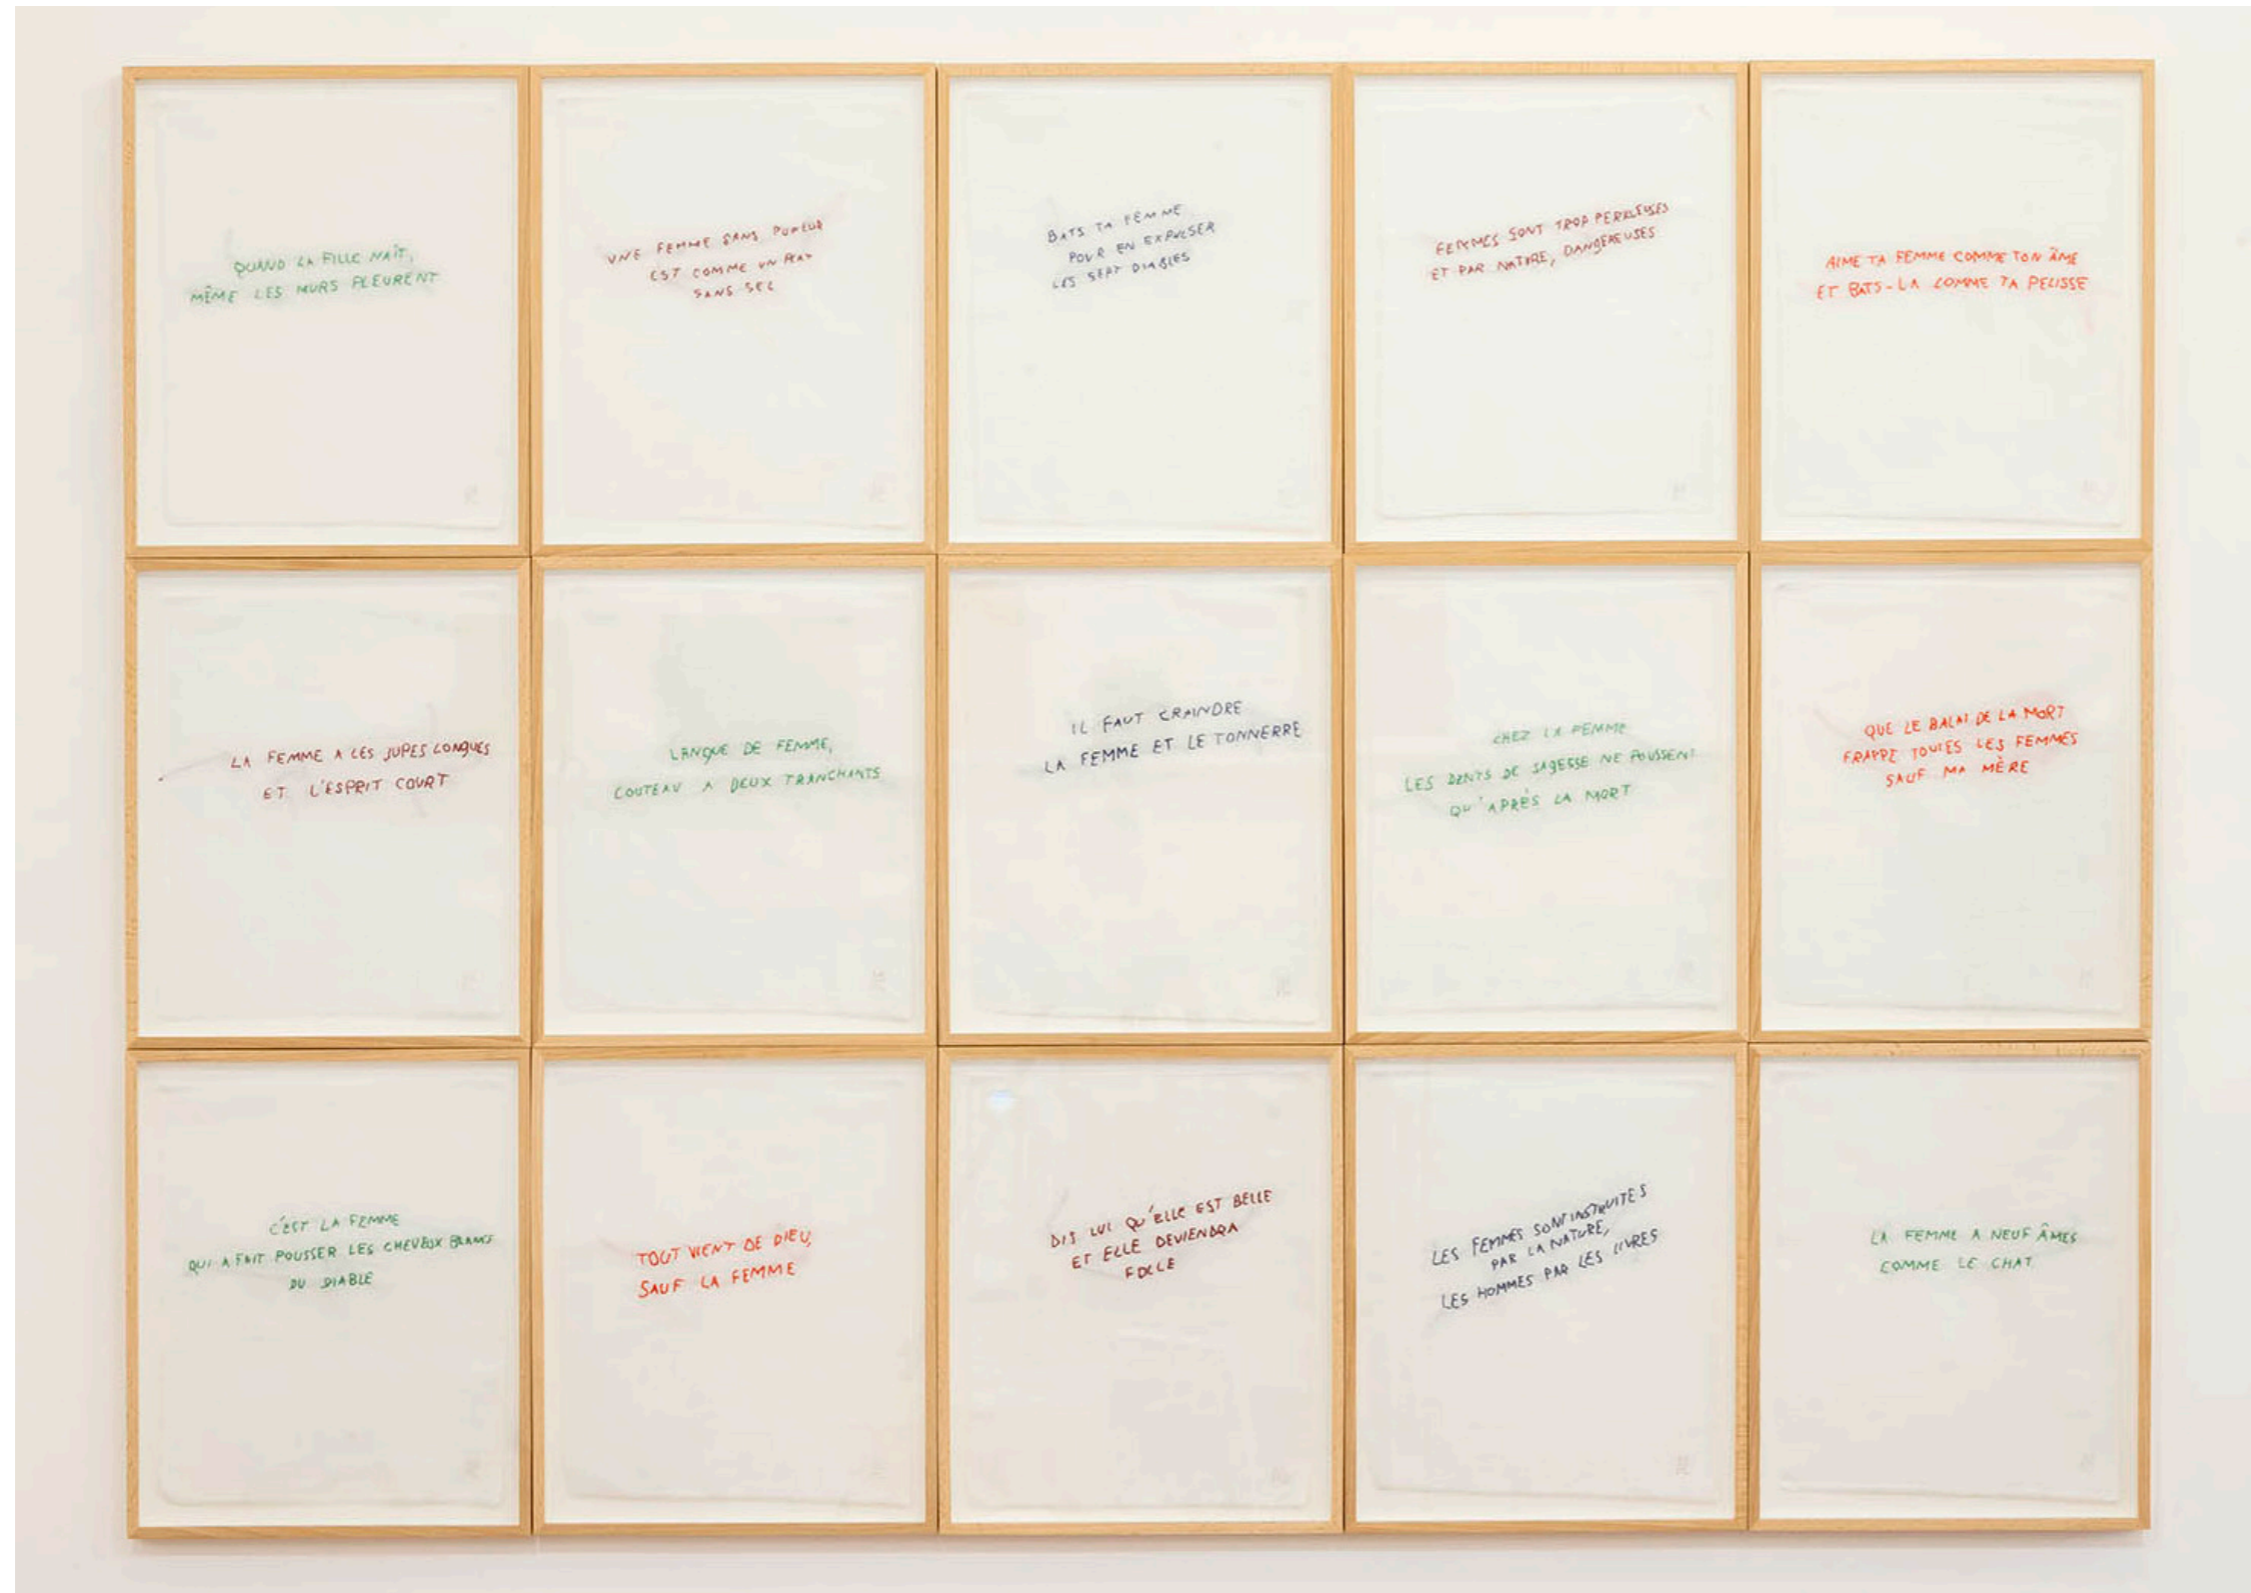 QUAND LA FILLE NAÎT,
MÊME LES MURS PLEURENT
UNE FEMME SANS PUDEUR
EST COMME UN PLAT
SANS SEL
BATS TA FEMME
POUR EN EXPULSER
LES SEPT DIABLES
FEMMES SONT TROP PERILLEUSES
ET PAR NATURE, DANGEREUSES
AIME TA FEMME COMME TON ÂME
ET BATS-LA COMME TA PELISSE
LA FEMME A LES JUPES LONGUES
ET L'ESPRIT COURT
LANGUE DE FEMME,
COUTEAU A DEUX TRANCHANTS
IL FAUT CRAINDRE
LA FEMME ET LE TONNERRE
CHEZ LA FEMME
LES DENTS DE SAGESSE NE POUSSENT
QU'APRÈS LA MORT
QUE LE BALAI DE LA MORT
FRAPPE TOUTES LES FEMMES
SAUF MA MÈRE
C'EST LA FEMME
QUI A FAIT POUSSER LES CHEVEUX BLANCS
DU DIABLE
TOUT VIENT DE DIEU,
SAUF LA FEMME
DIS LUI QU'ELLE EST BELLE
ET ELLE DEVIENDRA
FOLLE
LES FEMMES SONT INSTRUITES
PAR LA NATURE,
LES HOMMES PAR LES LIVRES
LA FEMME A NEUF ÂMES
COMME LE CHAT